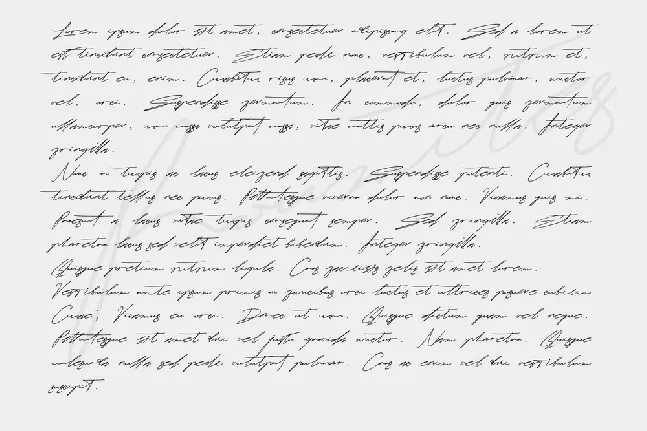 Lorem ipsum dolor sit amet, consectetuer adipiscing elit. Sed a lorem ut
est tincidunt consectetuer. Etiam pede nunc, vestibulum vel, rutrum et,
tincidunt eu, enim. Curabitur risus urna, placerat et, luctus pulvinar, auctor
vel, orci. Suspendisse fermentum. In commodo, dolor quis fermentum
ullamcorper, urna massa volutpat massa, vitae mattis purus arcu nec nulla. Integer
fringilla.
Nunc in turpis ac lacus eleifend sagittis. Suspendisse potenti. Curabitur
tincidunt tellus nec purus. Pellentesque viverra dolor non nunc. Vivamus quis mi.
Praesent a lacus vitae turpis consequat semper. Sed fringilla. Etiam
pharetra lacus sed velit imperdiet bibendum. Integer fringilla.
Quisque pretium rutrum ligula. Cras facilisis felis sit amet lorem.
Vestibulum ante ipsum primis in faucibus orci luctus et ultrices posuere cubilia
Curae; Vivamus eu orci. Donec ut urna. Quisque dictum quam vel neque.
Pellentesque sit amet dui vel justo gravida auctor. Nam pharetra. Quisque
malesuada nulla sed pede volutpat pulvinar. Cras ac enim vel dui vestibulum
suscipit.